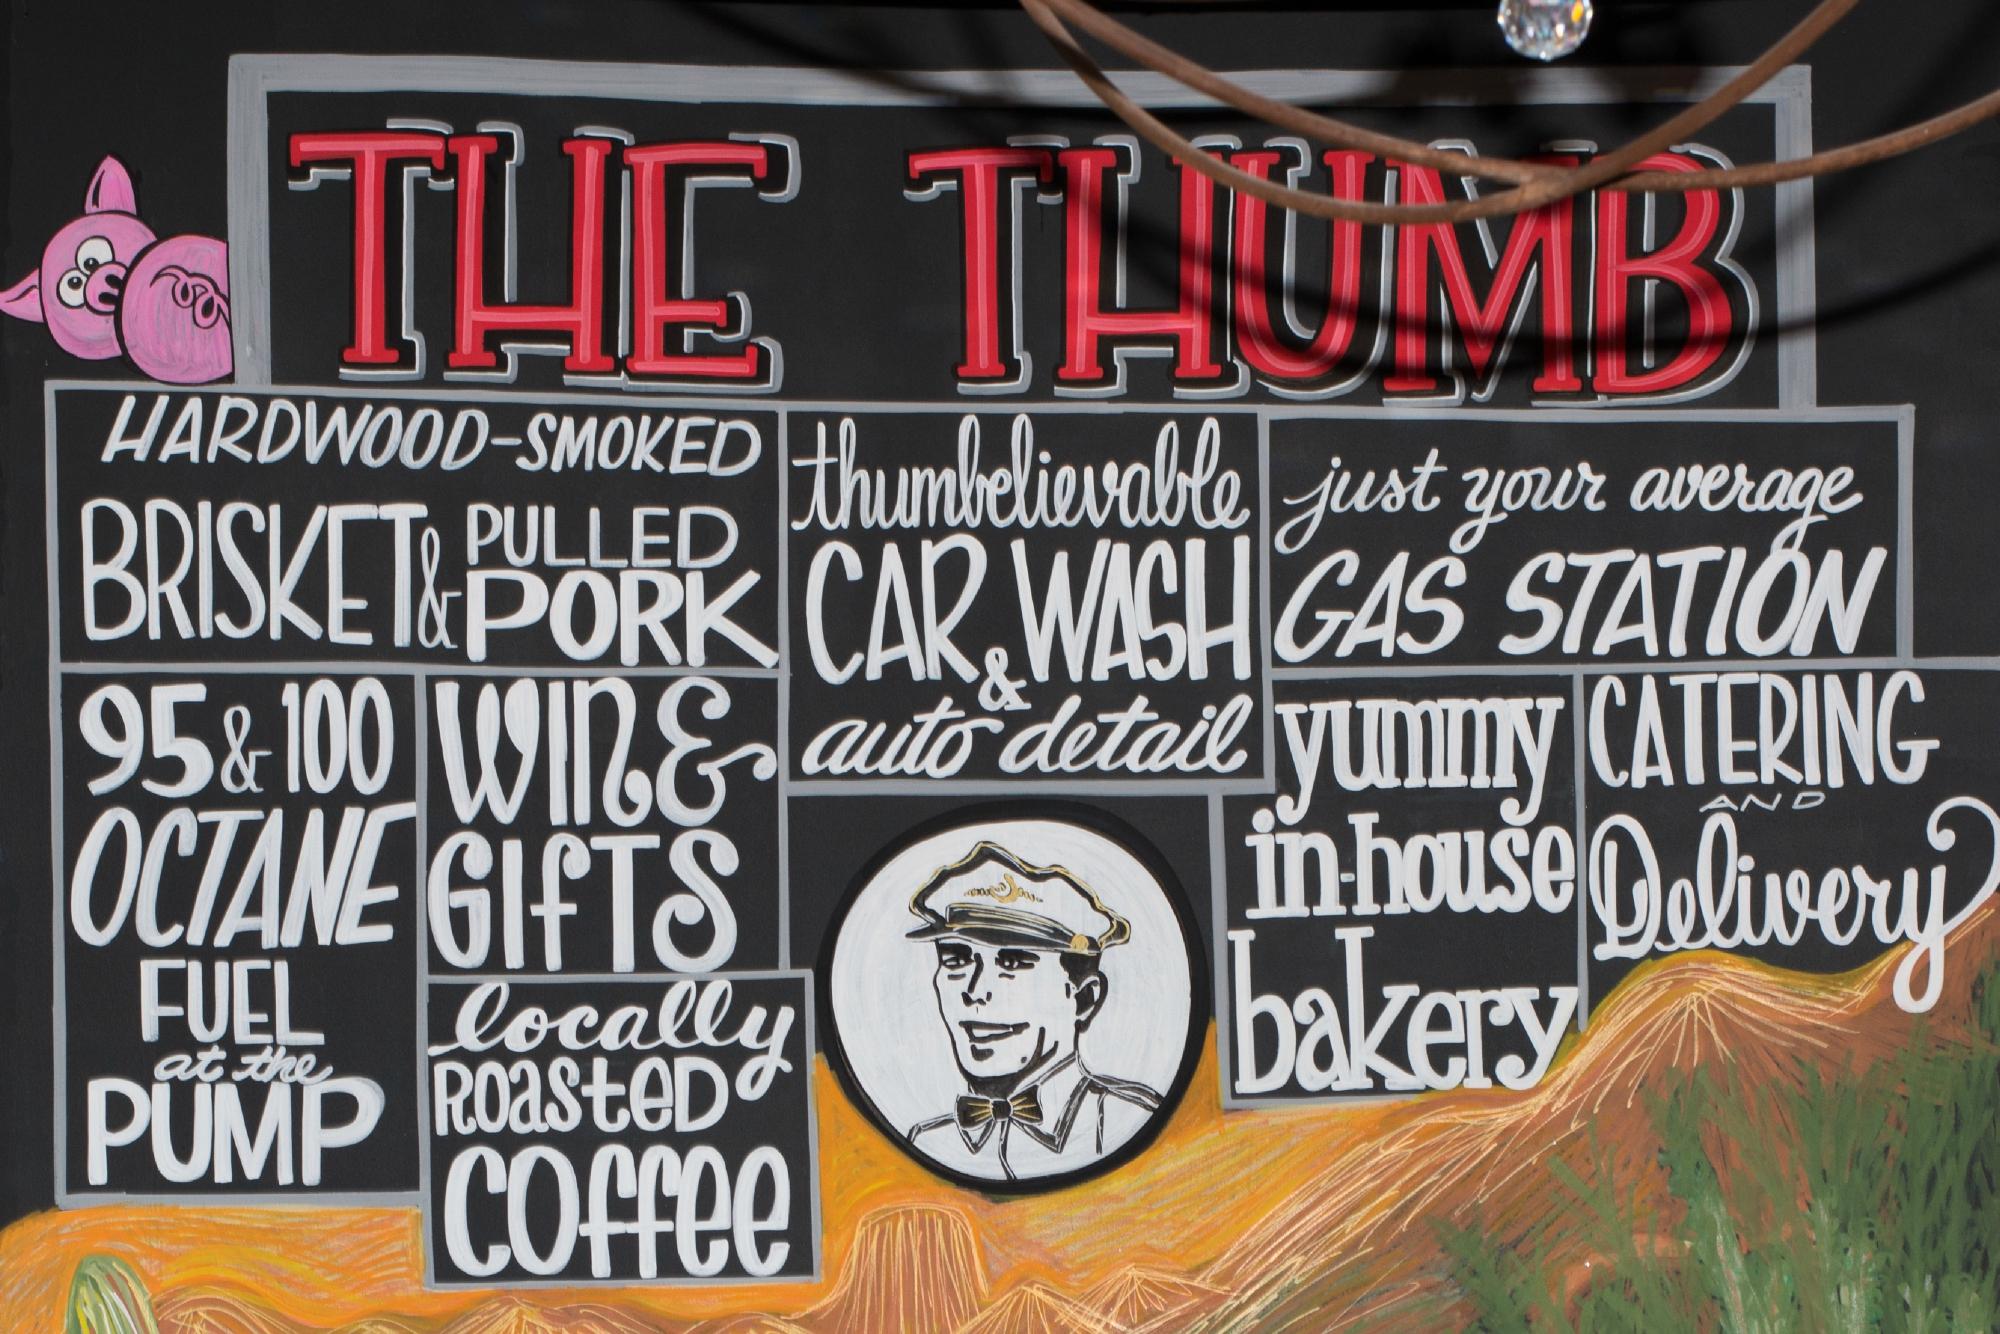 THE THUMB
HARDWOOD-SMOKED
BRISKET & PULLED
PORK
thumbelievable
CAR WASH
&
auto detail
just your average
GAS STATION
95 & 100
OCTANE
FUEL
at the
PUMP
WINE &
GIFTS
locally
ROASTED
COFFEE
yummy
in-house
bakery
CATERING
AND
Delivery